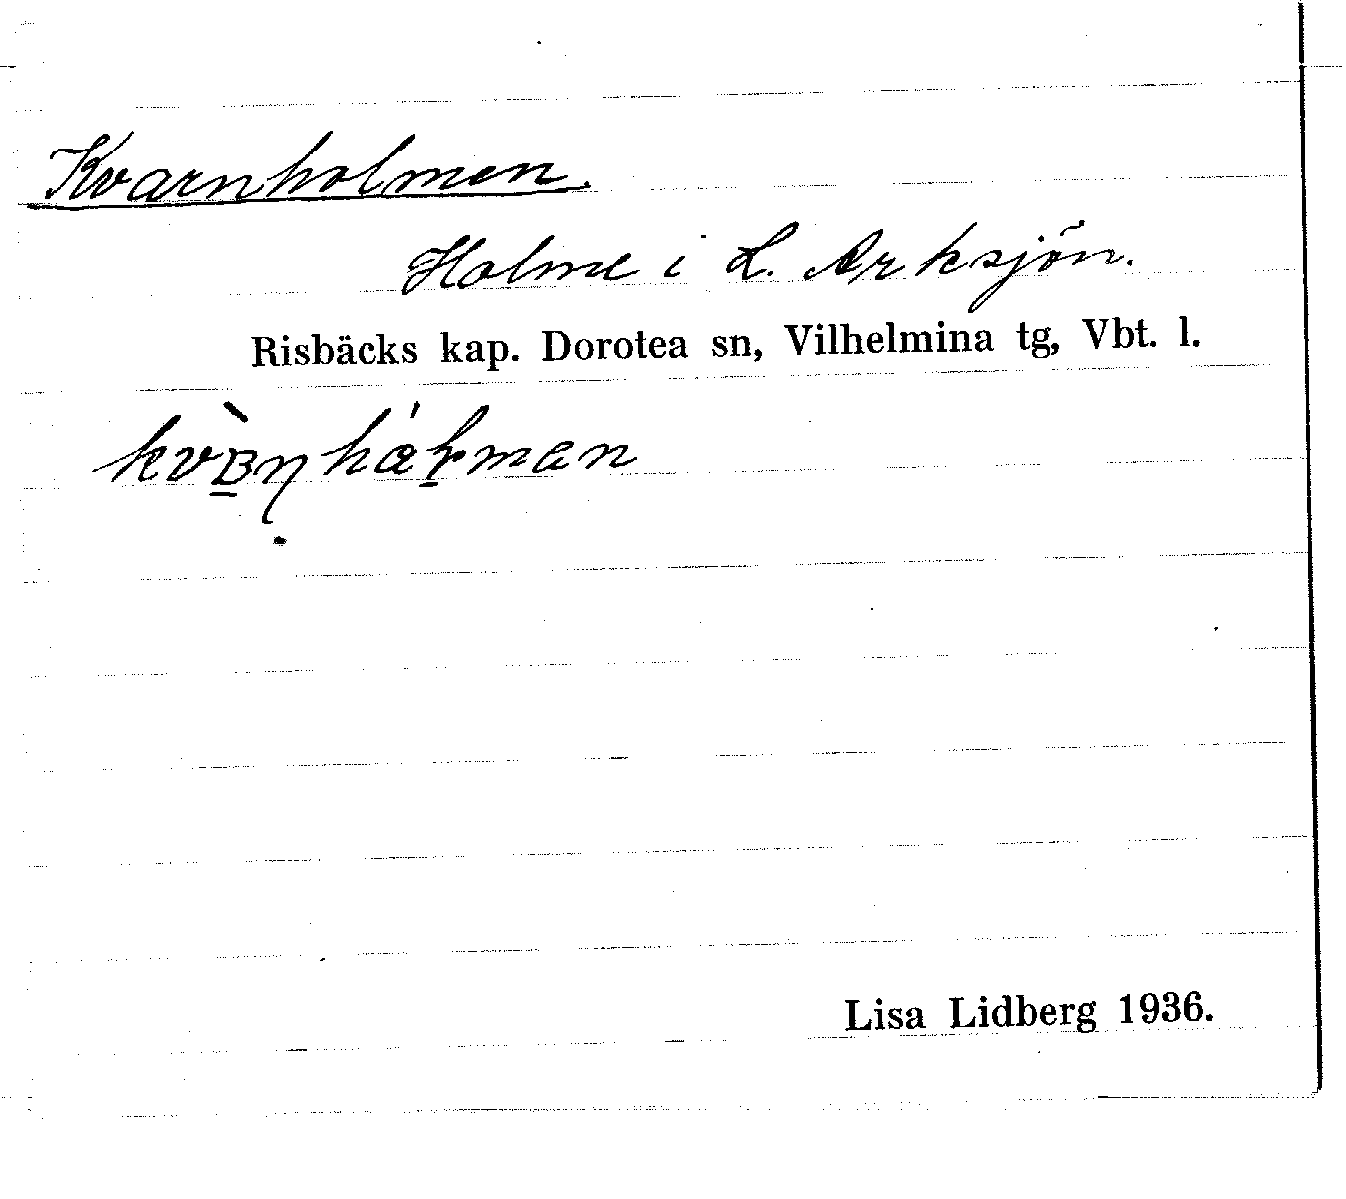 Kvarnholmen.
Holme i L. Arksjön.
Risbäcks kap. Dorotea sn, Vilhelmina tg, Vbt. l.
Lisa Lidberg 1936.